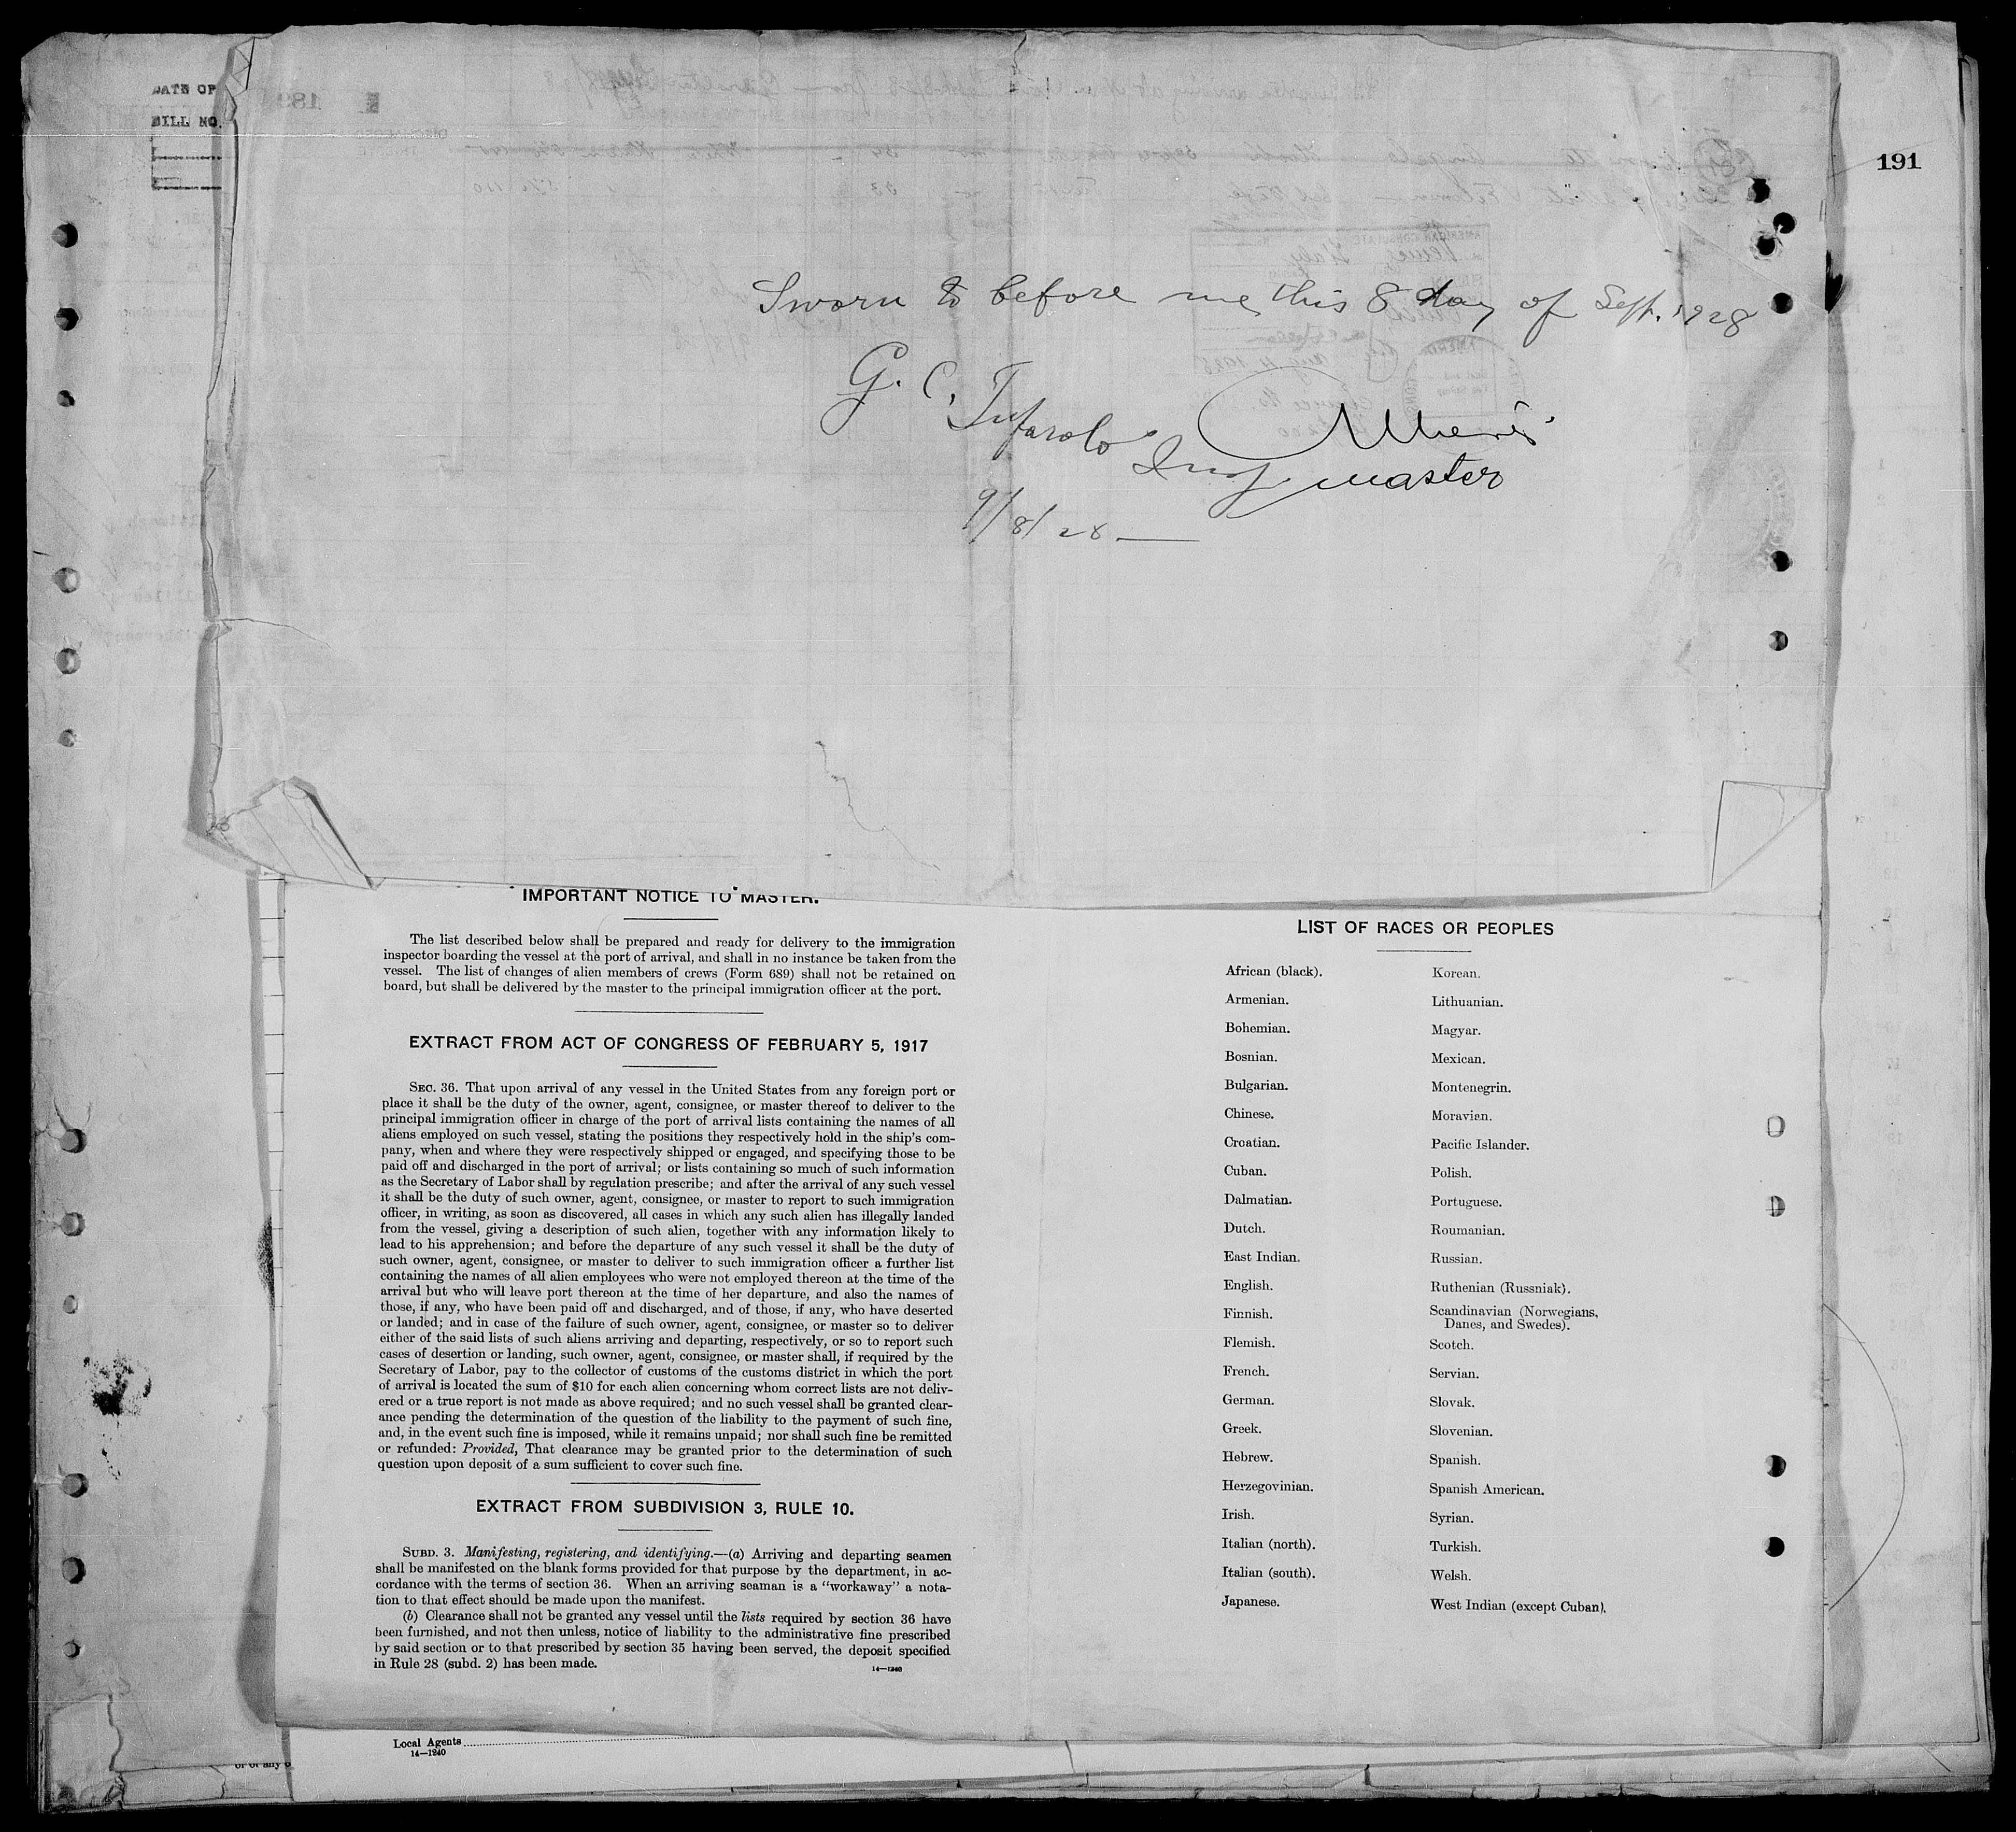 DATE OF
BILL NO.
191
Sworn to before me this 8 day of Sept. 1928
G. C. Tufarolo Insp.
master
9/8/28
IMPORTANT NOTICE TO MASTER.
The list described below shall be prepared and ready for delivery to the immigration
inspector boarding the vessel at the port of arrival, and shall in no instance be taken from the
vessel. The list of changes of alien members of crews (Form 689) shall not be retained on
board, but shall be delivered by the master to the principal immigration officer at the port.
EXTRACT FROM ACT OF CONGRESS OF FEBRUARY 5, 1917
SEC. 36. That upon arrival of any vessel in the United States from any foreign port or
place it shall be the duty of the owner, agent, consignee, or master thereof to deliver to the
principal immigration officer in charge of the port of arrival lists containing the names of all
aliens employed on such vessel, stating the positions they respectively hold in the ship's com-
pany, when and where they were respectively shipped or engaged, and specifying those to be
paid off and discharged in the port of arrival; or lists containing so much of such information
as the Secretary of Labor shall by regulation prescribe; and after the arrival of any such vessel
it shall be the duty of such owner, agent, consignee, or master to report to such immigration
officer, in writing, as soon as discovered, all cases in which any such alien has illegally landed
from the vessel, giving a description of such alien, together with any information likely to
lead to his apprehension; and before the departure of any such vessel it shall be the duty of
such owner, agent, consignee, or master to deliver to such immigration officer a further list
containing the names of all alien employees who were not employed thereon at the time of the
arrival but who will leave port thereon at the time of her departure, and also the names of
those, if any, who have been paid off and discharged, and of those, if any, who have deserted
or landed; and in case of the failure of such owner, agent, consignee, or master so to deliver
either of the said lists of such aliens arriving and departing, respectively, or so to report such
cases of desertion or landing, such owner, agent, consignee, or master shall, if required by the
Secretary of Labor, pay to the collector of customs of the customs district in which the port
of arrival is located the sum of $10 for each alien concerning whom correct lists are not deliv-
ered or a true report is not made as above required; and no such vessel shall be granted clear-
ance pending the determination of the question of the liability to the payment of such fine,
and, in the event such fine is imposed, while it remains unpaid; nor shall such fine be remitted
or refunded: Provided, That clearance may be granted prior to the determination of such
question upon deposit of a sum sufficient to cover such fine.
EXTRACT FROM SUBDIVISION 3, RULE 10.
SUBD. 3. Manifesting, registering, and identifying.—(a) Arriving and departing seamen
shall be manifested on the blank forms provided for that purpose by the department, in ac-
cordance with the terms of section 36. When an arriving seaman is a "workaway" a nota-
tion to that effect should be made upon the manifest.
(b) Clearance shall not be granted any vessel until the lists required by section 36 have
been furnished, and not then unless, notice of liability to the administrative fine prescribed
by said section or to that prescribed by section 35 having been served, the deposit specified
in Rule 28 (subd. 2) has been made.
14—1240
LIST OF RACES OR PEOPLES
African (black).
Armenian.
Bohemian.
Bosnian.
Bulgarian.
Chinese.
Croatian.
Cuban.
Dalmatian.
Dutch.
East Indian.
English.
Finnish.
Flemish.
French.
German.
Greek.
Hebrew.
Herzegovinian.
Irish.
Italian (north).
Italian (south).
Japanese.
Korean.
Lithuanian.
Magyar.
Mexican.
Montenegrin.
Moravian.
Pacific Islander.
Polish.
Portuguese.
Roumanian.
Russian.
Ruthenian (Russniak).
Scandinavian (Norwegians,
Danes, and Swedes).
Scotch.
Servian.
Slovak.
Slovenian.
Spanish.
Spanish American.
Syrian.
Turkish.
Welsh.
West Indian (except Cuban).
Local Agents
14—1240